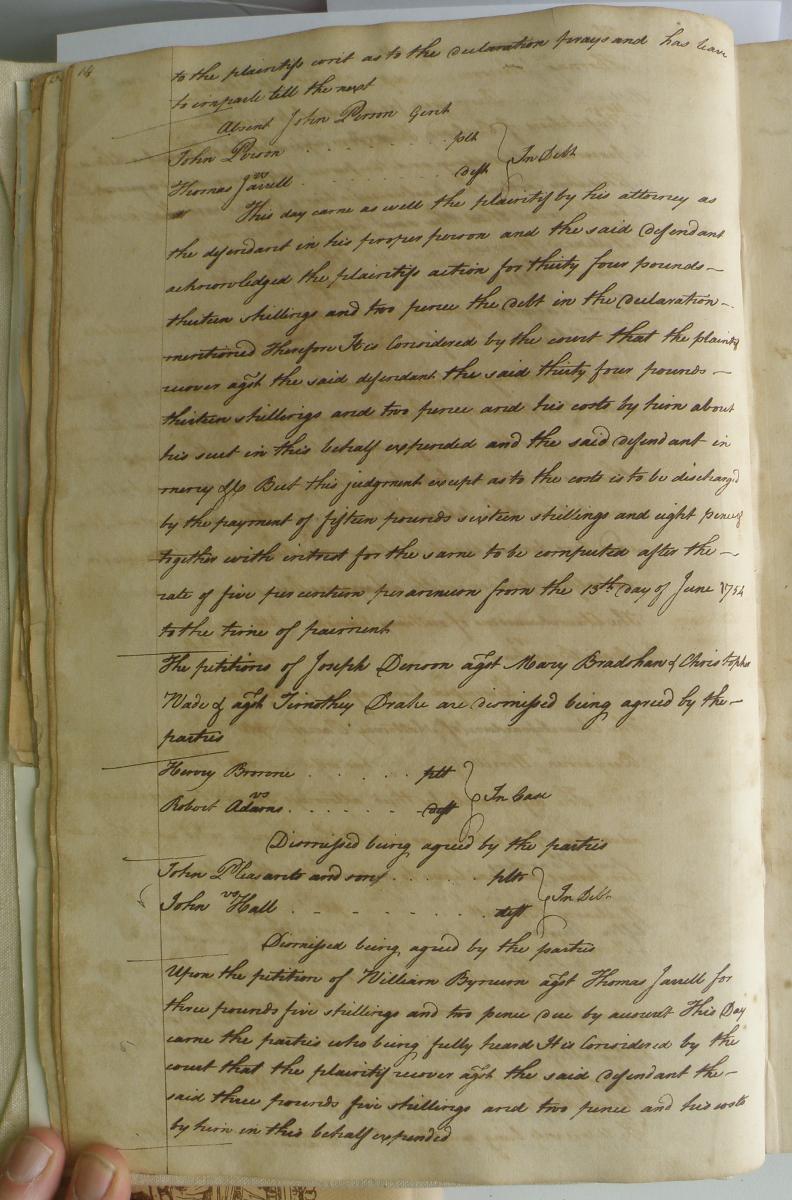 14
to the plaintifs writ as to the declaration prays and has leave
to imparle till the next
Absent John Person Gent
John Person . . . . . . . plt } In Debt
vs
Thomas Jarrell . . . . . . . deft
This day came as well the plaintif by his attorney as
the defendant in his proper person and the said defendant
acknowledged the plaintifs action for thirty four pounds –
thirteen shillings and two pence the debt in the declaration –
mentioned Therefore It is Considered by the court that the plaintif
recover agst the said defendant the said thirty four pounds –
thirteen shillings and two pence and his costs by him about
his suit in this behalf expended and the said defendant in
mercy &c But this judgment except as to the costs is to be discharg'd
by the payment of fifteen pounds sixteen shillings and eight pence
together with intrest for the same to be computed after the –
rate of five per centum per annum from the 13th Day of June 1754
to the time of paiment
The petitions of Joseph Denson agst Mary Bradshaw & Christopher
Wade & agst Timothey Drake are dismissed being agreed by the –
parties
Henry Browne . . . . . plt } In Case
vs
Robert Adams . . . . . . deft
Dismissed being agreed by the parties
John Pleasants and sons . . . . plts } In Debt
vs
John Hall . . . . . . . deft
Dismissed being agreed by the parties
Upon the petition of William Bynum agst Thomas Jarrell for
three pounds five shillings and two pence due by account This Day
came the parties who being fully heard It is Considered by the
court that the plaintif recover agst the said defendant the –
said three pounds five shillings and two pence and his costs
by him in this behalf expended